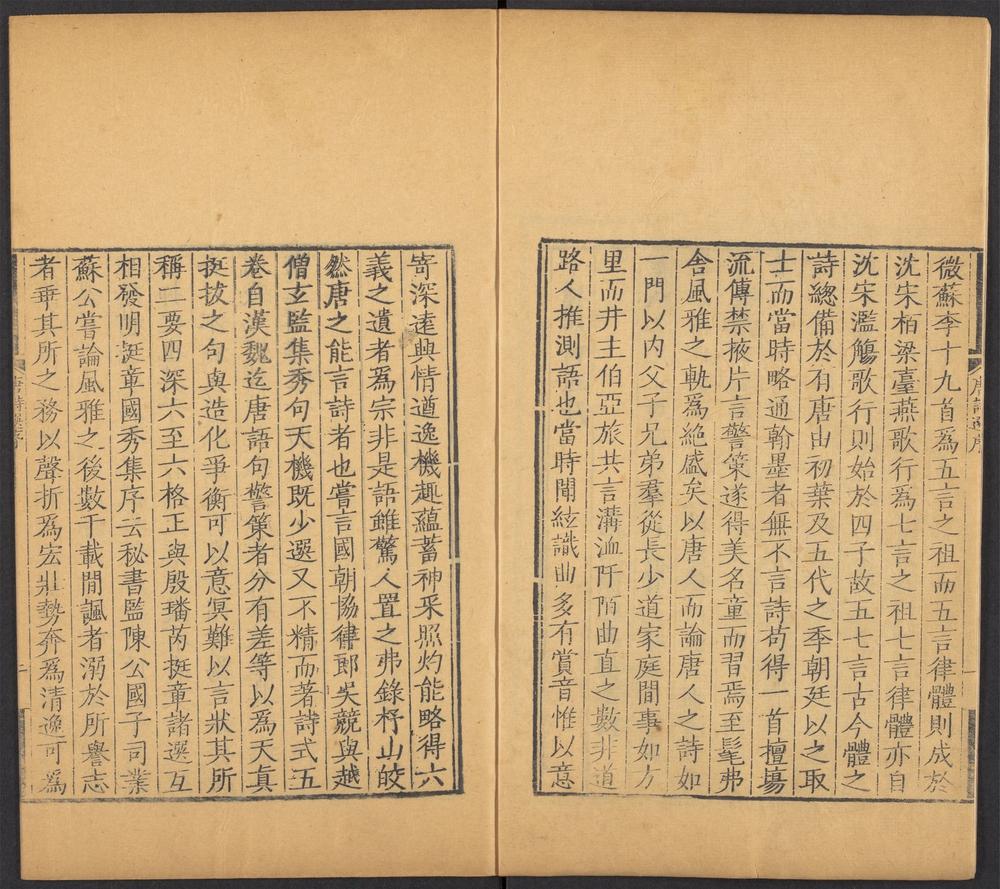 微蘇李十九首為五言之祖而五言律體則成於
沈宋栢梁臺燕歌行為七言之祖七言律體亦自
沈宋濫觴歌行則始於四子故五七言古今體之
詩總備於有唐由初葉及五代之季朝廷以之取
士而當時略通翰墨者無不言詩苟得一首擅塲
流傳禁掖片言警策遂得美名童而習焉至髦弗
舍風雅之軌為絶盛矣以唐人而論唐人之詩如
一門以内父子兄弟羣從長少道家庭間事如方
里而井主伯亞旅共言溝洫阡陌曲直之數非道
路人推測語也當時聞絃識曲多有賞音惟以意
唐詩選序
寄深遠興情遒逸機趣蘊蓄神采照灼能略得六
義之遺者為宗非是語雖驚人置之弗錄杼山皎
然唐之能言詩者也嘗言國朝協律郎吳競與越
僧玄監集秀句天機既少選又不精而著詩式五
卷自漢魏迄唐語句警策者分有差等以為天真
挺拔之句與造化爭衡可以意冥難以言狀其所
稱二要四深六至六格正與殷璠芮挺章諸選互
相發明挺章國秀集序云秘書監陳公國子司業
蘇公嘗論風雅之後數千載間諷者溺於所譽志
者乖其所之務以聲折為宏壯勢奔為清逸可為
唐詩選序
二